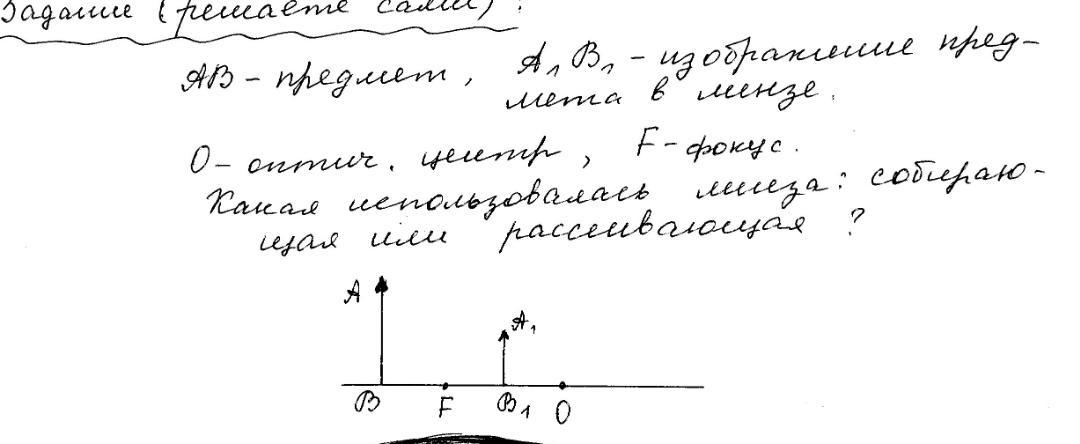 Задание (решаете сами):
AB - предмет, A₁B₁ - изображение пред-
мета в линзе.
O - оптич. центр, F - фокус.
Какая использовалась линза: собираю-
щая или рассеивающая?
A
A₁
B F B₁ O